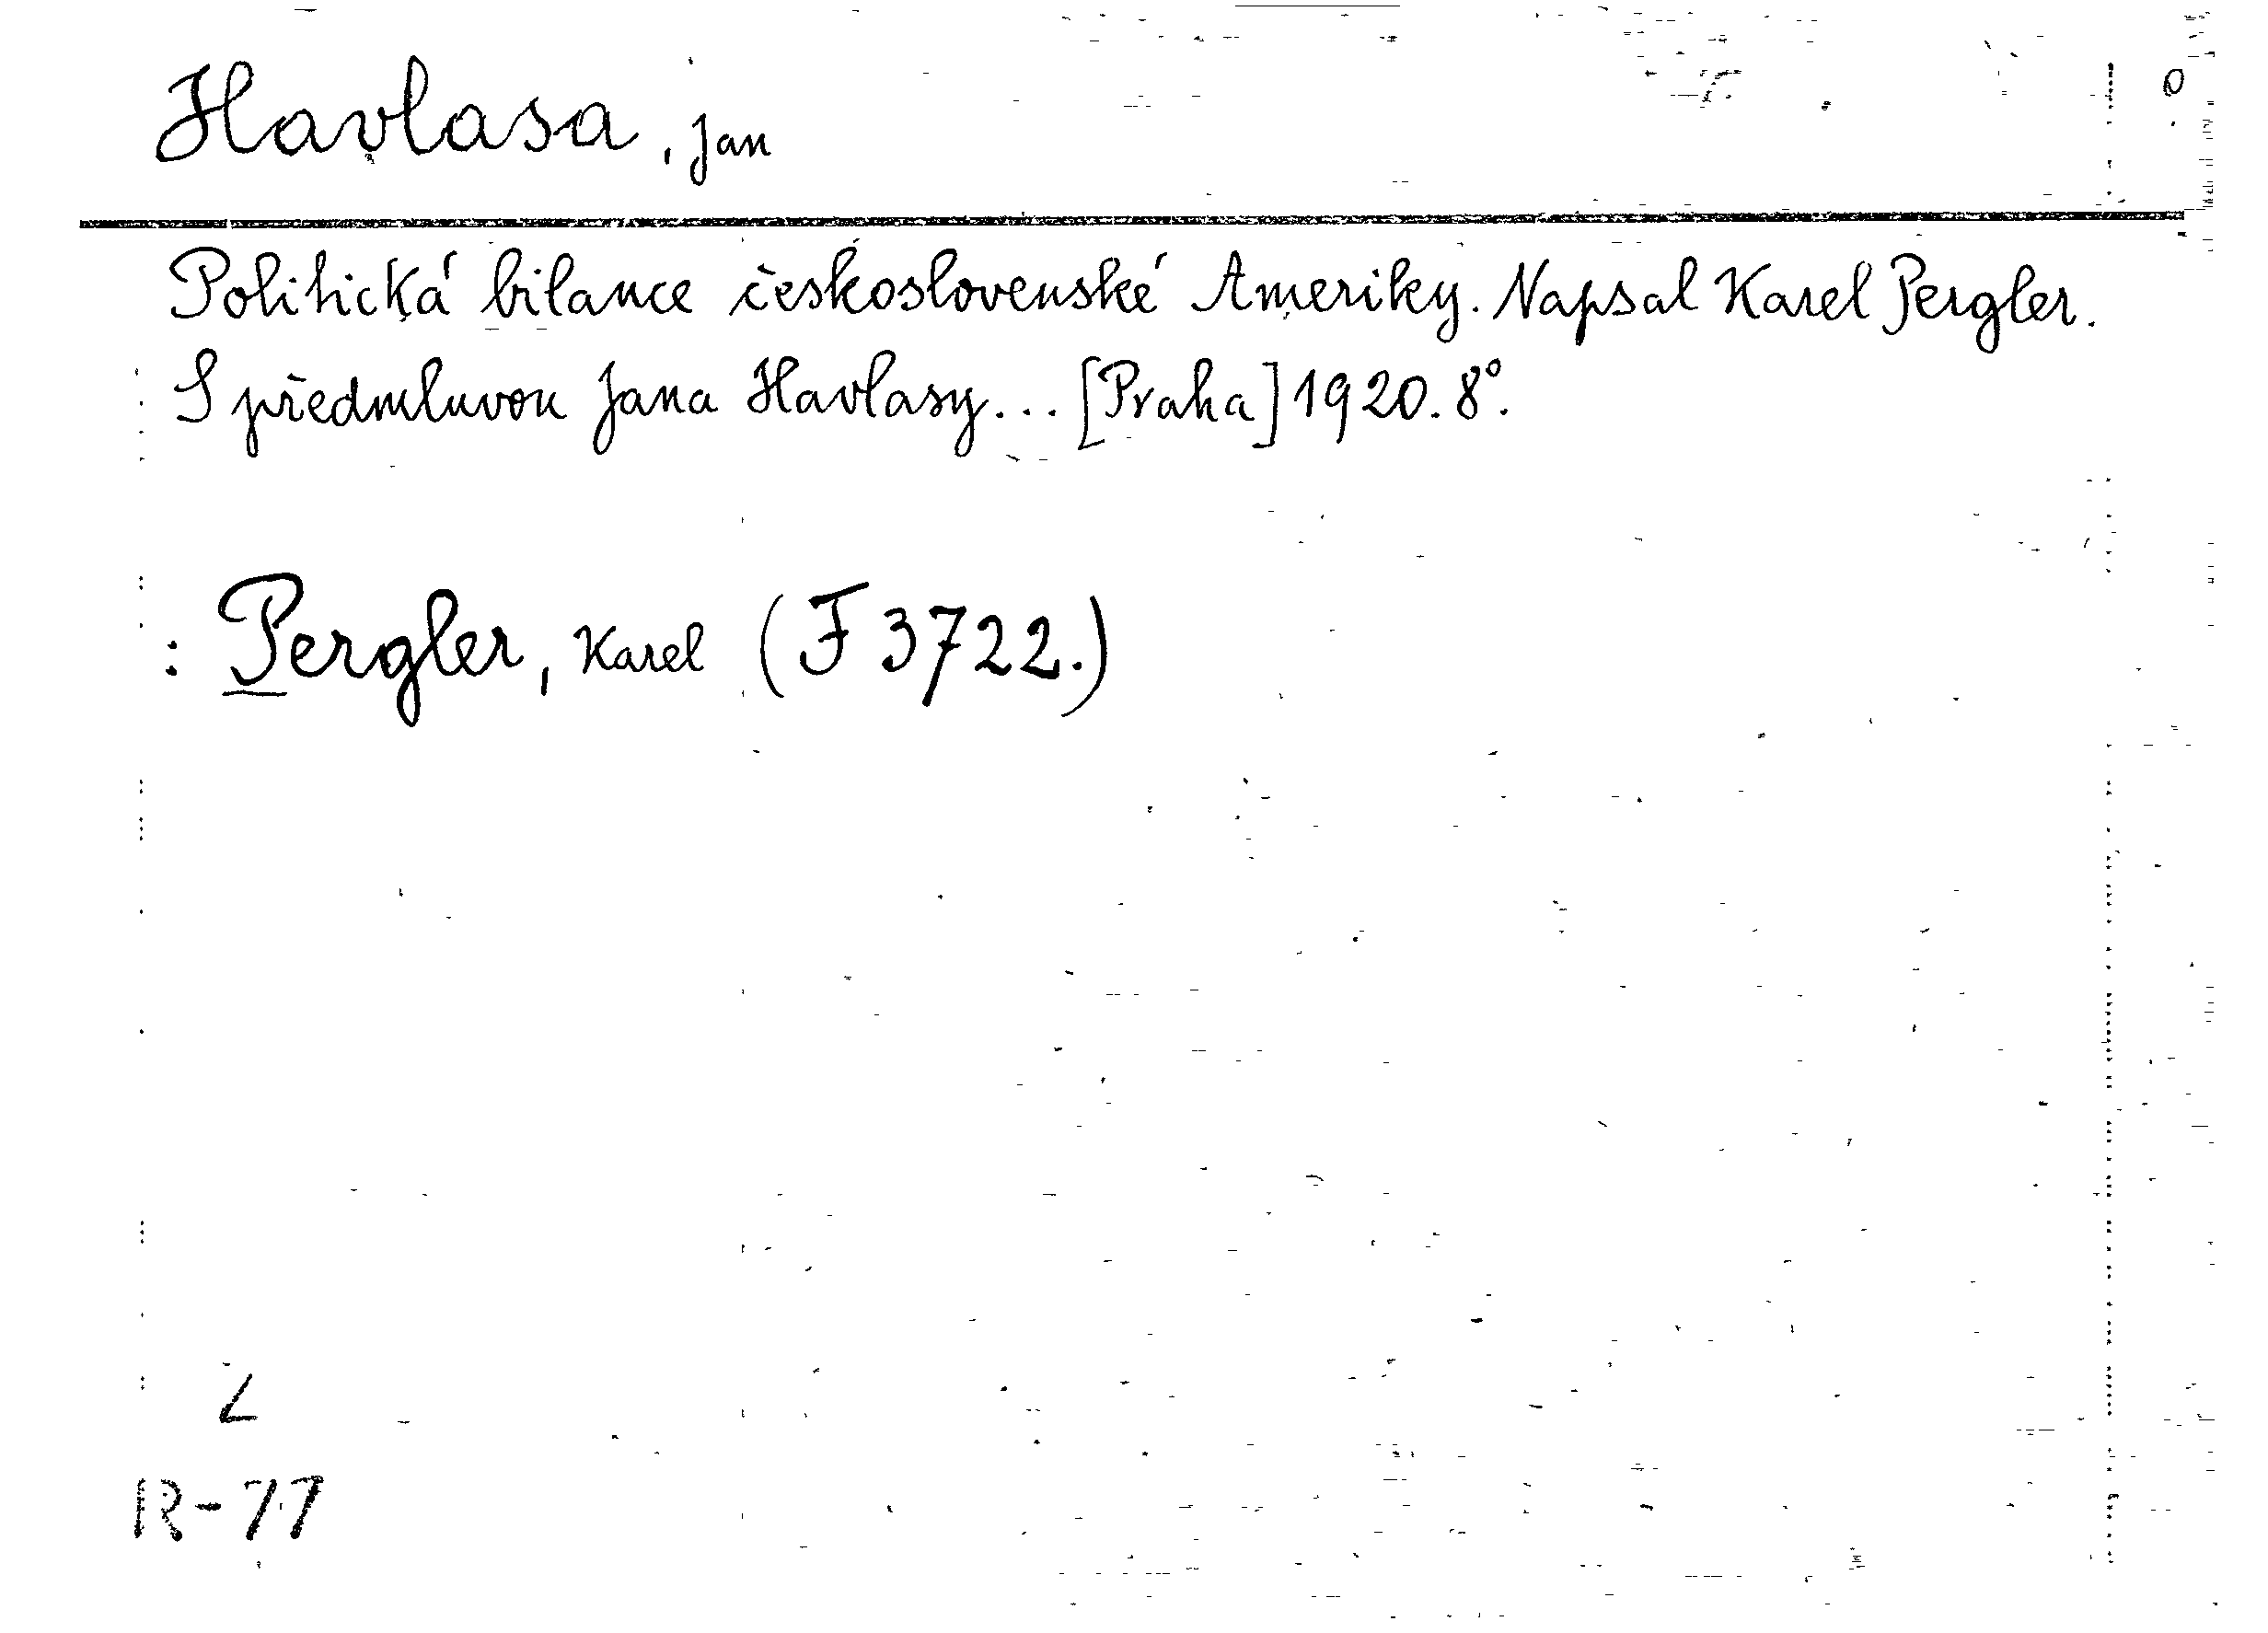 Havlasa, Jan
Politická bilance československé Ameriky. Napsal Karel Pergler.
S předmluvou Jana Havlasy... [Praha] 1920. 8°.
: Pergler, Karel (F 3722.)
Z
R-77